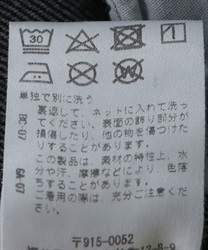 30
単独で別に洗う
裏返して、ネットに入れて洗っ
てください。表面の飾り部分が
損傷したり、他の物を傷つけた
りすることがあります。
この製品は、素材の特性上、水
分や汗、摩擦などにより、色落
ちすることがあります。
ご着用の際は、充分ご注意くだ
さい。
〒915-0052